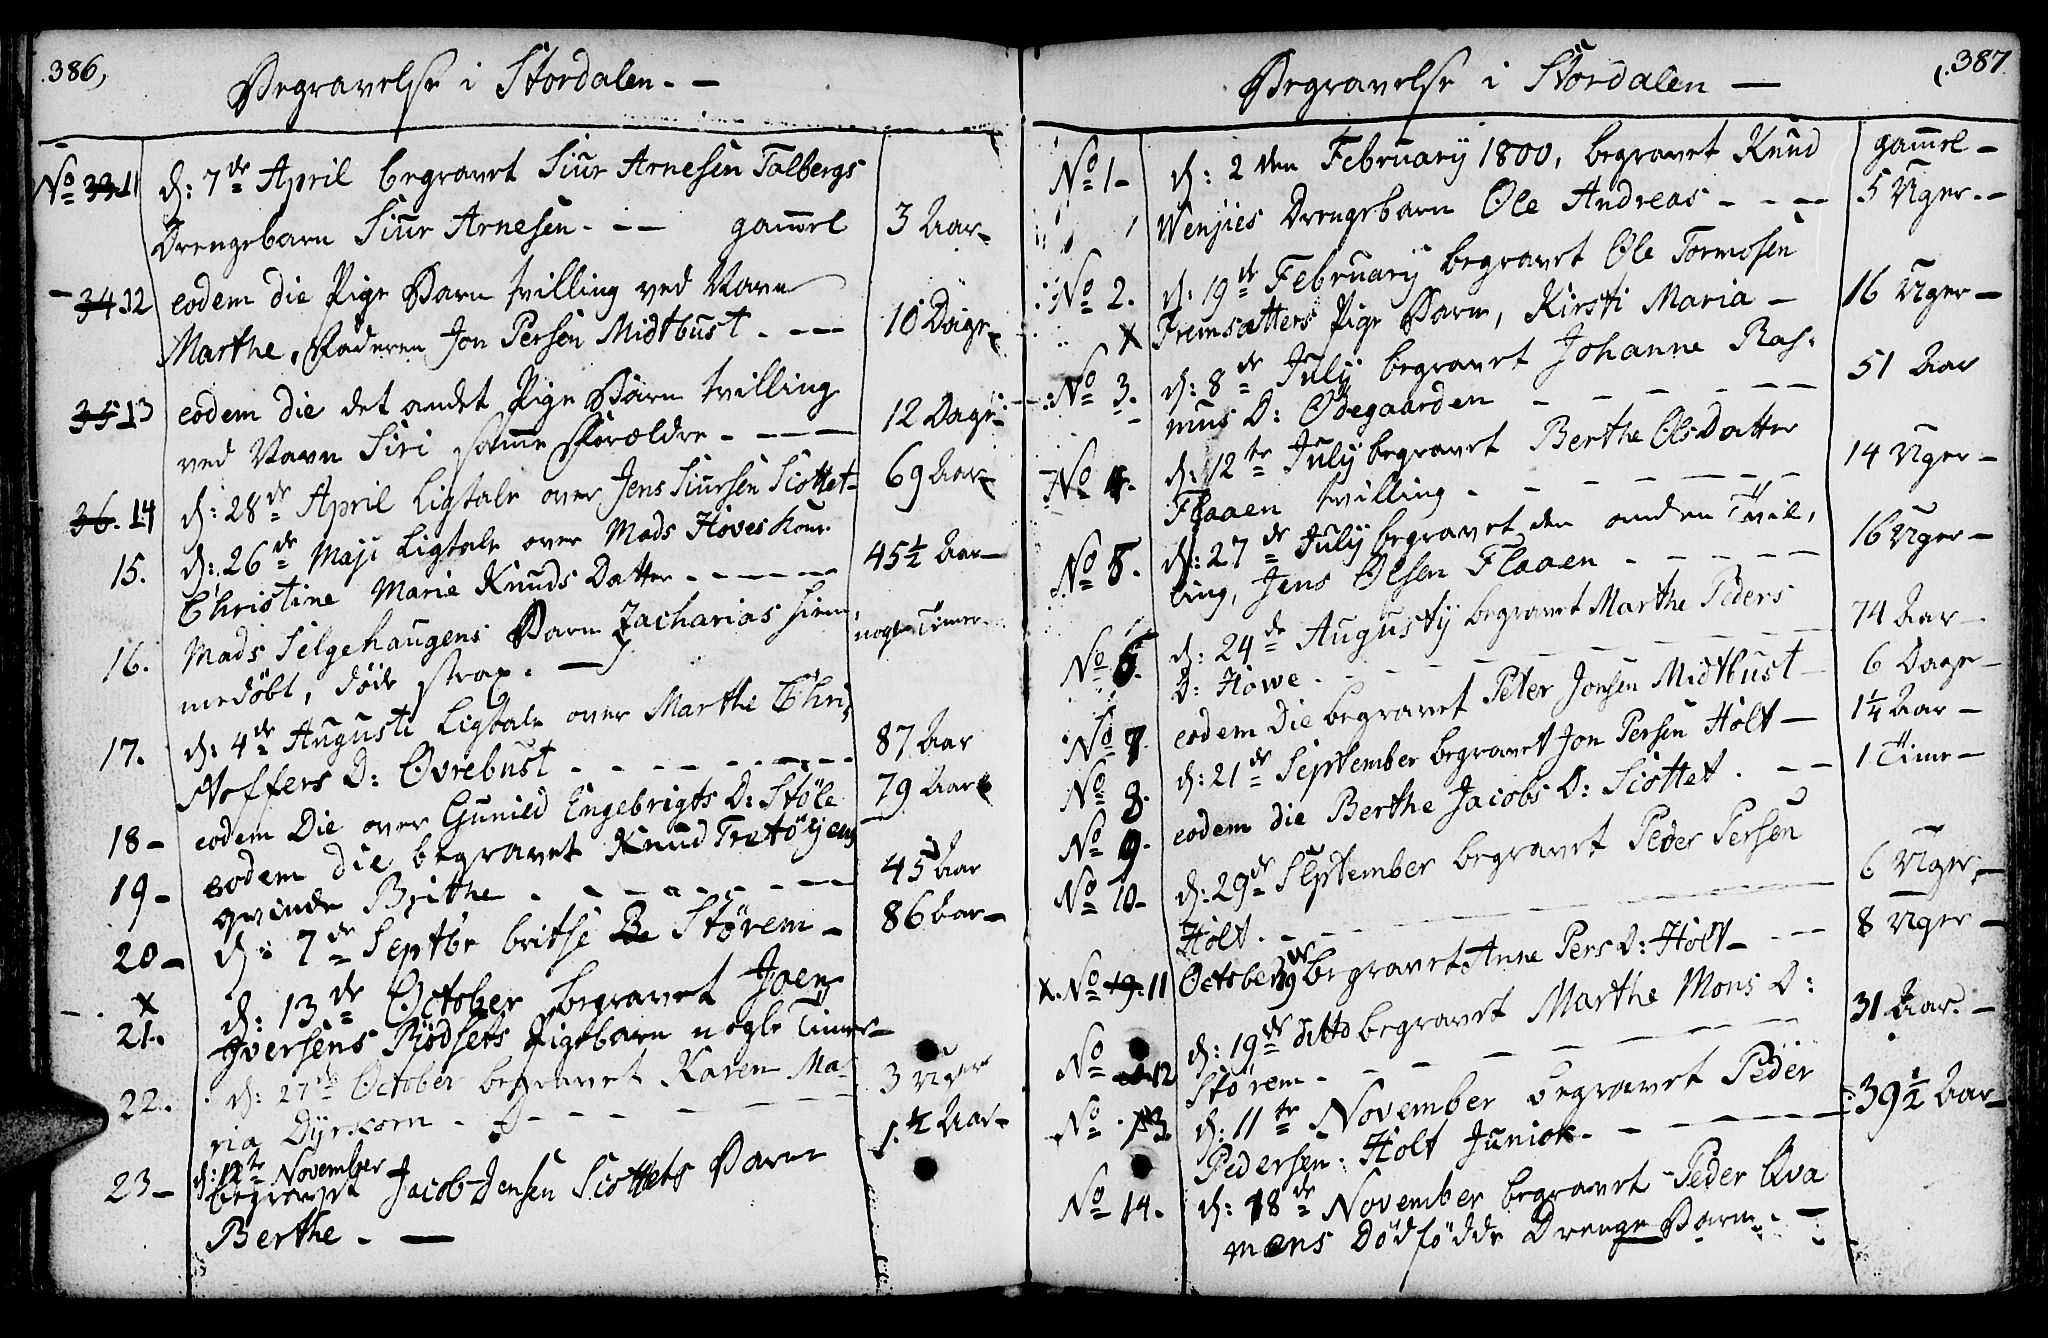 386,
Begravelse i Stordalen. -
No 33. 11 d: 7de April begravet Siur Arnesen Talbergs
Drengebarn Siur Arnesen. - - gammel 3 Aar
34. 12 eodem die Pige Barn tvilling ved Navn
Marthe, Faderen Jon Persen Midtbust. - - 10 Dage
35 13 eodem die det andet Pige Barn tvilling
ved Navn Siri samme Forældre - - - - 12 Dage
36. 14 d: 28de April Ligtale over Jens Siursen Scottet - 69 Aar
15. d: 26de Maji Ligtale over Mads Høves Kone
Christine Marie Knuds Datter - - - - - 45 1/2 Aar -
16. Mads Selgehaugens Barn Zacharias hiem,
medøbt, døde strax. - nogle Timer
17. d: 4de Augusti Ligtale over Marthe Chri,
stoffers D: Øvrebust - - - - - - - - 87 Aar
18 - eodem Die over Gunild Engebrigts D: Støle 79 Aar
19 - eodem die begravet Knud Tretøyens
qvinde Brithe - - - - - - - - 45 Aar
20 - d: 7de Septbr britse Be Størem - 86 Aar -
x
21. d: 13de October begravet Joen
Iversens Rødsets Pigebarn nogle Timer -
22. d: 27de October begravet Karen Ma-
ria Dyrkorn - - - - - - - 3 Uger
23 - d: 12te November
begravet Jacob Jensen Scottets Barn 1. 1/4 Aar -
Berthe. -
387
Begravelse i Stordalen -
gammel -
No 1 - d: 2den February 1800, begravet Knud
Wenjies Drengebarn Ole Andreas - - - 5 Uger. -
No 2. d: 19de February begravet Ole Tormosen
x Fremsætters Pige Barn, Kirsti Maria - 16 Uger -
No 3. d: 8de July begravet Johanne Ras:
mus D: Ødegaarden - - - - - - 51 Aar
No 4. d: 12te July begravet Berthe Ols Datter
Flaaen tvilling - - - - - - - 14 Uger -
No 5. d: 27de July begravet den anden Tvil,
ling, Jens Olsen Flaaen - - - - - 16 Uger -
No 6. d: 24de Augusty begravet Marthe Peders
D: Høwe. - - - - - - - - 74 Aar -
No 7. eodem Die begravet Peter Jonsen Midtbust - 6 Dage -
No 8. d: 21de September begravet Jon Persen Holt - 1 1/4 Aar -
No 9. eodem die Berthe Jacobs D: Scottet. - - 1 Time -
No 10 - d: 29de September begravet Peder Persen
Holt. - - - - - - - - 6 Uger. -
x. No 19. 11 October 19de begravet Anne Pers D: Holt - - - 8 Uger -
No 12 d: 19de ditto begravet Marthe Mons D:
Størem - - - - - - - 31 Aar. -
No 13. d: 11te November begravet Peder
Pedersen Holt Junior. - - - - - 39 1/2 Aar -
No 14. d: 18de November begravet Peder Qva
mens Dødfødde Drenge Barn. -